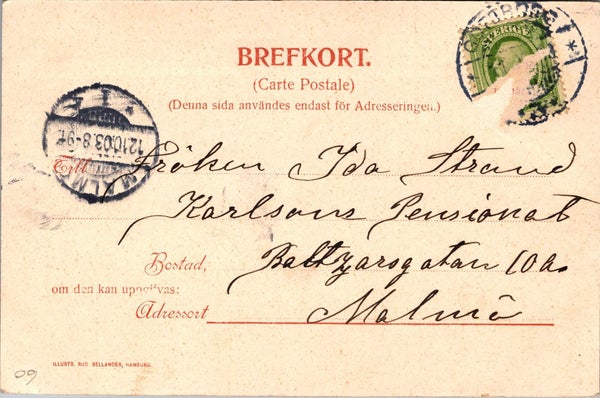 BREFKORT.
(Carte Postale)
(Denna sida användes endast för Adresseringen.)
SVERIGE
GÖTEBORG
MALMÖ
12.10.03.8-9
Till Fröken Ida Strand
Karlsons Pensionat
Bostad, Baltzarsgatan 10a
om den kan uppgifvas:
Adressort Malmö
ILLUSTR. RUD BELLANDER, HAMBURG.
09